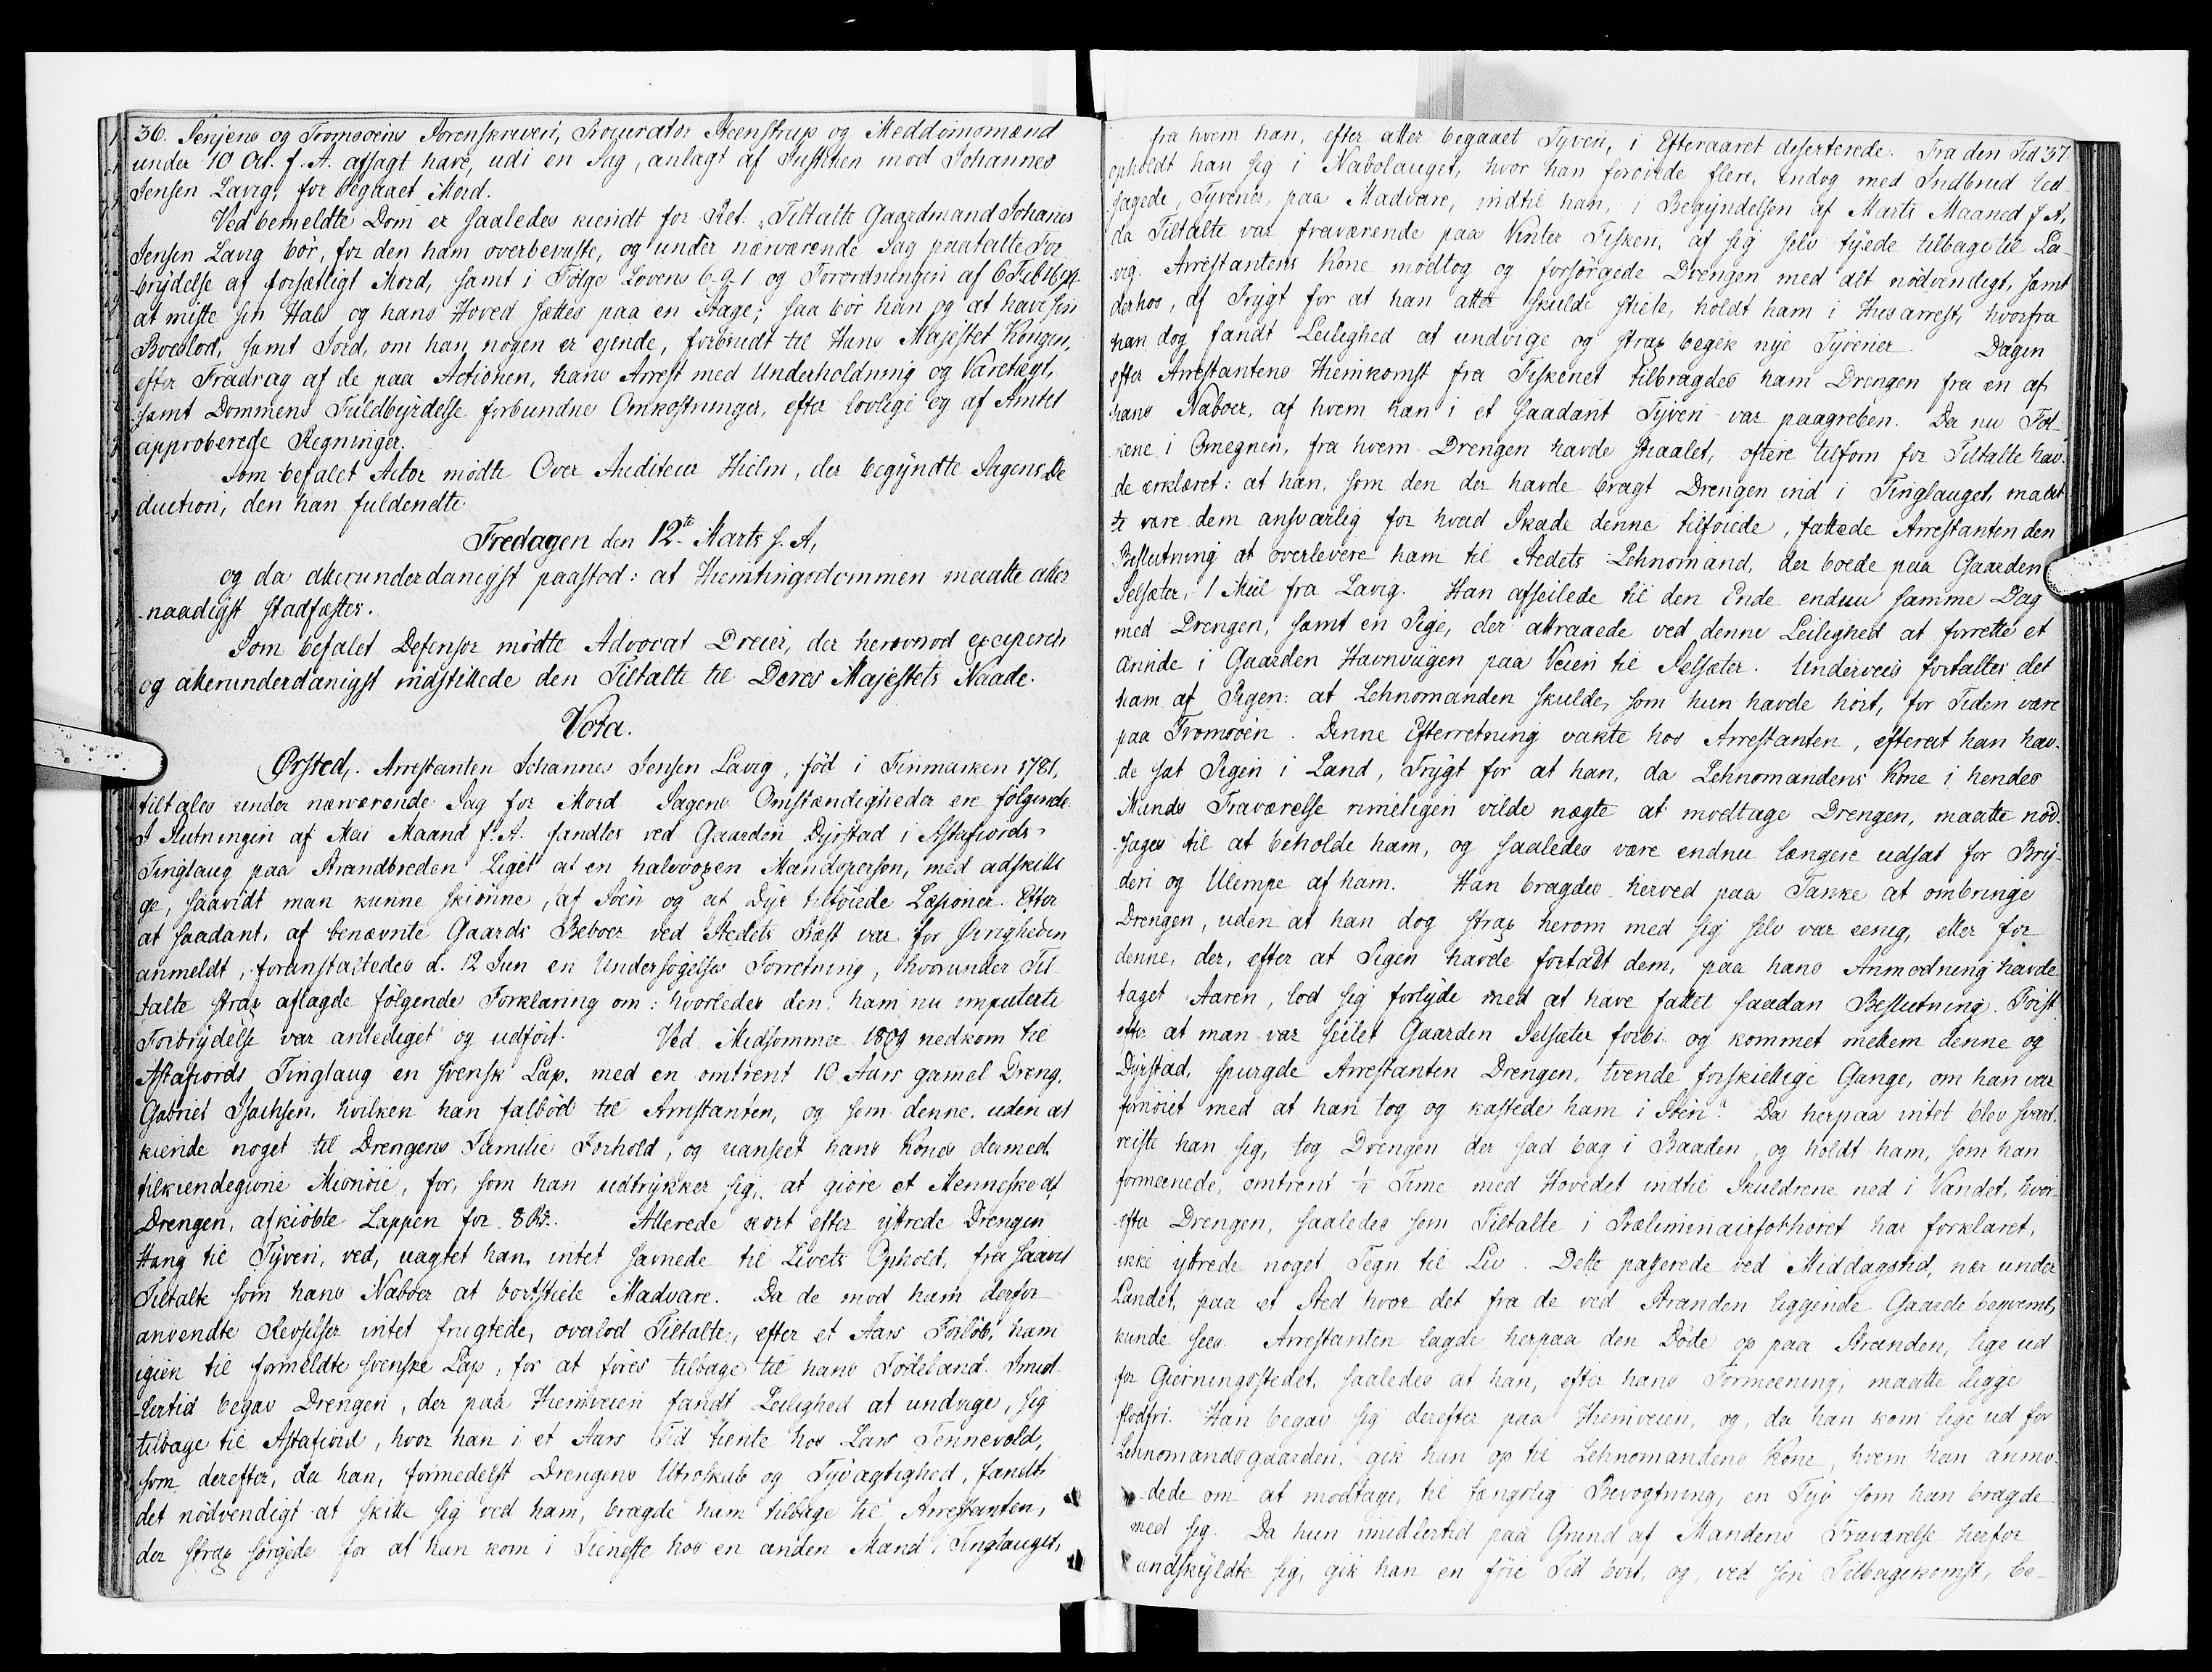 36. Senjens og Tromsøens Sorenskriveri, Procurator Steenstrup og Meddomsmænd
under 10 Oct. f. A. afsagt have, udi en Sag, anlagt af Justitien mod Johannes
Jensen Lavig, for begaaet Mord.
Ved bemeldte Dom er saaledes kiendt for Ret: „Tiltalte Gaardmand Johanes
Jensen Lavig bör, for den ham overbeviiste, og under nærværende Sag paatalte For
brÿdelse af forsætligt Mord, samt i Følge Lovens 6-9-1 og Forordningen af 6 Feb. 1694
at miste sin Hals og hans Hoved sættes paa en Stage; saa bör han og at have sin
Boeslod, samt Jord, om han nogen er ejende, forbrudt til Hans Majestet Kongen,
efter Fradrag af de paa Actionen, hans Arrest med Underholdning og Varetægt,
samt Dommens Fuldbÿrdelse forbundne Omkostninger, efter lovlige og af Amtet
approberede Regninger.
Som befalet Actor mödte Over Auditeur Hielm, der begÿndte Sagens De
duction, den han fuldendte
Fredagen den 12te Marts s. A,
og da allerunderdanigst paastod: at Hiemtingsdommen maatte aller
-naadigst stadfæstes.
Som befalet Defensor mödte Advocat Dreier, der herimod exciperede
og allerunderdanigst indstillede den Tiltalte til Deres Majestets Naade.
Vota.
Ørsted. Arrestanten Johannes Jensen Lavig, föd i Finmarken 1781,
tiltales under nærværende Sag for Mord. Sagens Omstændigheder ere fölgende
I Slutningen af Mai Maaned f. A. fandtes ved Gaarden Dÿrstad i Astafiords
Tinglaug paa Strandbreden Liget af en halvvoxen Mandsperson, med adskilli
ge, saavidt man kunne skiönne, af Söen og et Dÿr tilföiede Læsioner. Efter
at saadant, af benævnte Gaards Beboer ved Stedets Præst var for Øvrigheden
anmeldt, foranstaltedes d. 12 Jun en Undersögelses Forretning, hvorunder Til
talte strax aflagde fölgende Forklaring om: hvorledes den ham nu imputerte
Forbrÿdelse var anlediget og udfört. Ved Midsommer 1809 nedkom til
Astafiords Tinglaug en svensk Lap, med en omtrent 10 Aars gamel Dreng,
Gabriel Isachsen, hvilken han falböd til Arrestanten, og som denne, uden at
kiende noget til Drengens Familie Forhold, og uanseet hans Kones dermed
tilkiendegivne Misnöie, for, som han udtrÿkker sig, at giöre et Menneske af
Drengen, afkiöbte Lappen for 8 Rd. Allerede kort efter ÿttrede Drengen
Hang til Tÿveri, ved, uagtet han intet savnede til Livets Ophold, fra saavel
Tiltalte som hans Naboer at bortstiele Madvare. Da de mod ham derfor
anvendte Revselser intet frugtede, overlod Tiltalte, efter et Aars Forlöb, ham
igien til formeldte svenske Lap, for at föres tilbage til hans Födeland. Imid
lertid begav Drengen, der paa Hiemveien fandt Leilighed at undvige, sig
tilbage til Astafiord, hvor han i et Aars Tid tiente hos Lars Tennevold,
som derefter, da han, formedelst Drengens Utroskab og Tÿvagtighed, fandt
det nödvendigt at skille sig ved ham, bragde ham tilbage til Arrestanten,
der strax sörgede for at han kom i Tieneste hos en anden Mand i Tinglauget,
fra hvem han, efter atter begaaet Tÿveri, i Efteraaret deserterede. Fra den Tid 37.
opholdt han sig i Nabolauget, hvor han forövede flere, endog med Indbrud led
sagede, Tÿverier, paa Madvare, indtil han, i Begÿndelsen af Marts Maaned f. A,
da Tiltalte var fraværende paa Vinter Fiskeri, af sig selv tÿede tilbage til La-
vig. Arrestantens Kone modtog og forsörgede Drengen med alt nödvendigt, samt
derhos, af Frÿgt for at han atter skulde stiele, holdt ham i Huusarrest, hvorfra
han dog fandt Leilighed at undvige og strax begik nÿe Tÿverier. Dagen
efter Arrestantens Hiemkomst fra Fiskeriet tilbragdes ham Drengen fra en af
hans Naboer, af hvem han i et saadant Tÿveri var paagreben. Da nu Fol-
kene i Omegnen, fra hvem Drengen havde stiaalet, oftere tilforn for Tiltalte hav-
de erklæret: at han, som den der havde bragt Drengen ind i Tinglauget, maat
te være dem ansvarlig for hvad Skade denne tilföiede, fattede Arrestanten den
Beslutning at overlevere ham til Stedets Lehnsmand, der boede paa Gaarden
Selsæter, 1 Miil fra Lavig. Han afseilede til den Ende endnu samme Dag
med Drengen, samt en Pige, der attraaede ved denne Leilighed at forrette et
Ærinde i Gaarden Havnviigen paa Veien til Selsæter. Underveis fortaltes det
ham af Pigen: at Lehnsmanden skulde, som hun havde hört, for Tiden være
paa Tromsöen. Denne Efterretning vakte hos Arrestanten, efterat han hav-
de sat Pigen i Land, Frÿgt for at han, da Lehnsmandens Kone i hendes
Mands Fraværelse rimeligen vilde nægte at modtage Drengen, maatte nöd-
sages til at beholde ham, og saaledes være endnu længere udsat for Brÿ-
deri og Ulempe af ham. Han bragdes herved paa Tanke at ombringe
Drengen, uden at han dog strax herom med sig selv var eenig, eller for
denne, der, efter at Pigen havde forladt dem, paa hans Anmodning havde
taget Aaren, lod sig forlÿde med at have fattet saadan Beslutning. Först
efter at man var seilet Gaarden Selsæter forbi og kommet mellem denne og
Dÿrstad, spurgde Arrestanten Drengen, tvende forskiellige Gange, om han var
fornöiet med at han tog og kastede ham i Söen? Da herpaa intet blev svart,
reiste han sig, tog Drengen der sad bag i Baaden, og holdt ham, som han
formeenede, omtrent ½ Time med Hovedet indtil Skuldrene ned i Vandet, hvor
efter Drengen, saaledes som Tiltalte i Præliminairforhöret har forklaret,
ikke ÿttrede noget Tegn til Liv. Dette passerede ved Middagstid, nær under
Landet, paa et Sted hvor det fra de ved Stranden liggende Gaarde beqvemt
kunde sees. Arrestanten lagde herpaa den Döde op paa Stranden, lige ud
for Gierningsstedet, saaledes at han, efter hans Formeening, maatte ligge
flodfri. Han begav sig derefter paa Hiemveien, og, da han kom lige ud for
Lehnsmandsgaarden, gik han op til Lehnsmandens Kone, hvem han anmo-
dede om at modtage, til fængslig Bevogtning, en Tÿv som han bragde
med sig. Da hun imidlertid paa Grund af Mandens Fraværelse herfor
undskÿldte sig, gik han en föie Tid bort, og, ved sin Tilbagekomst, be-